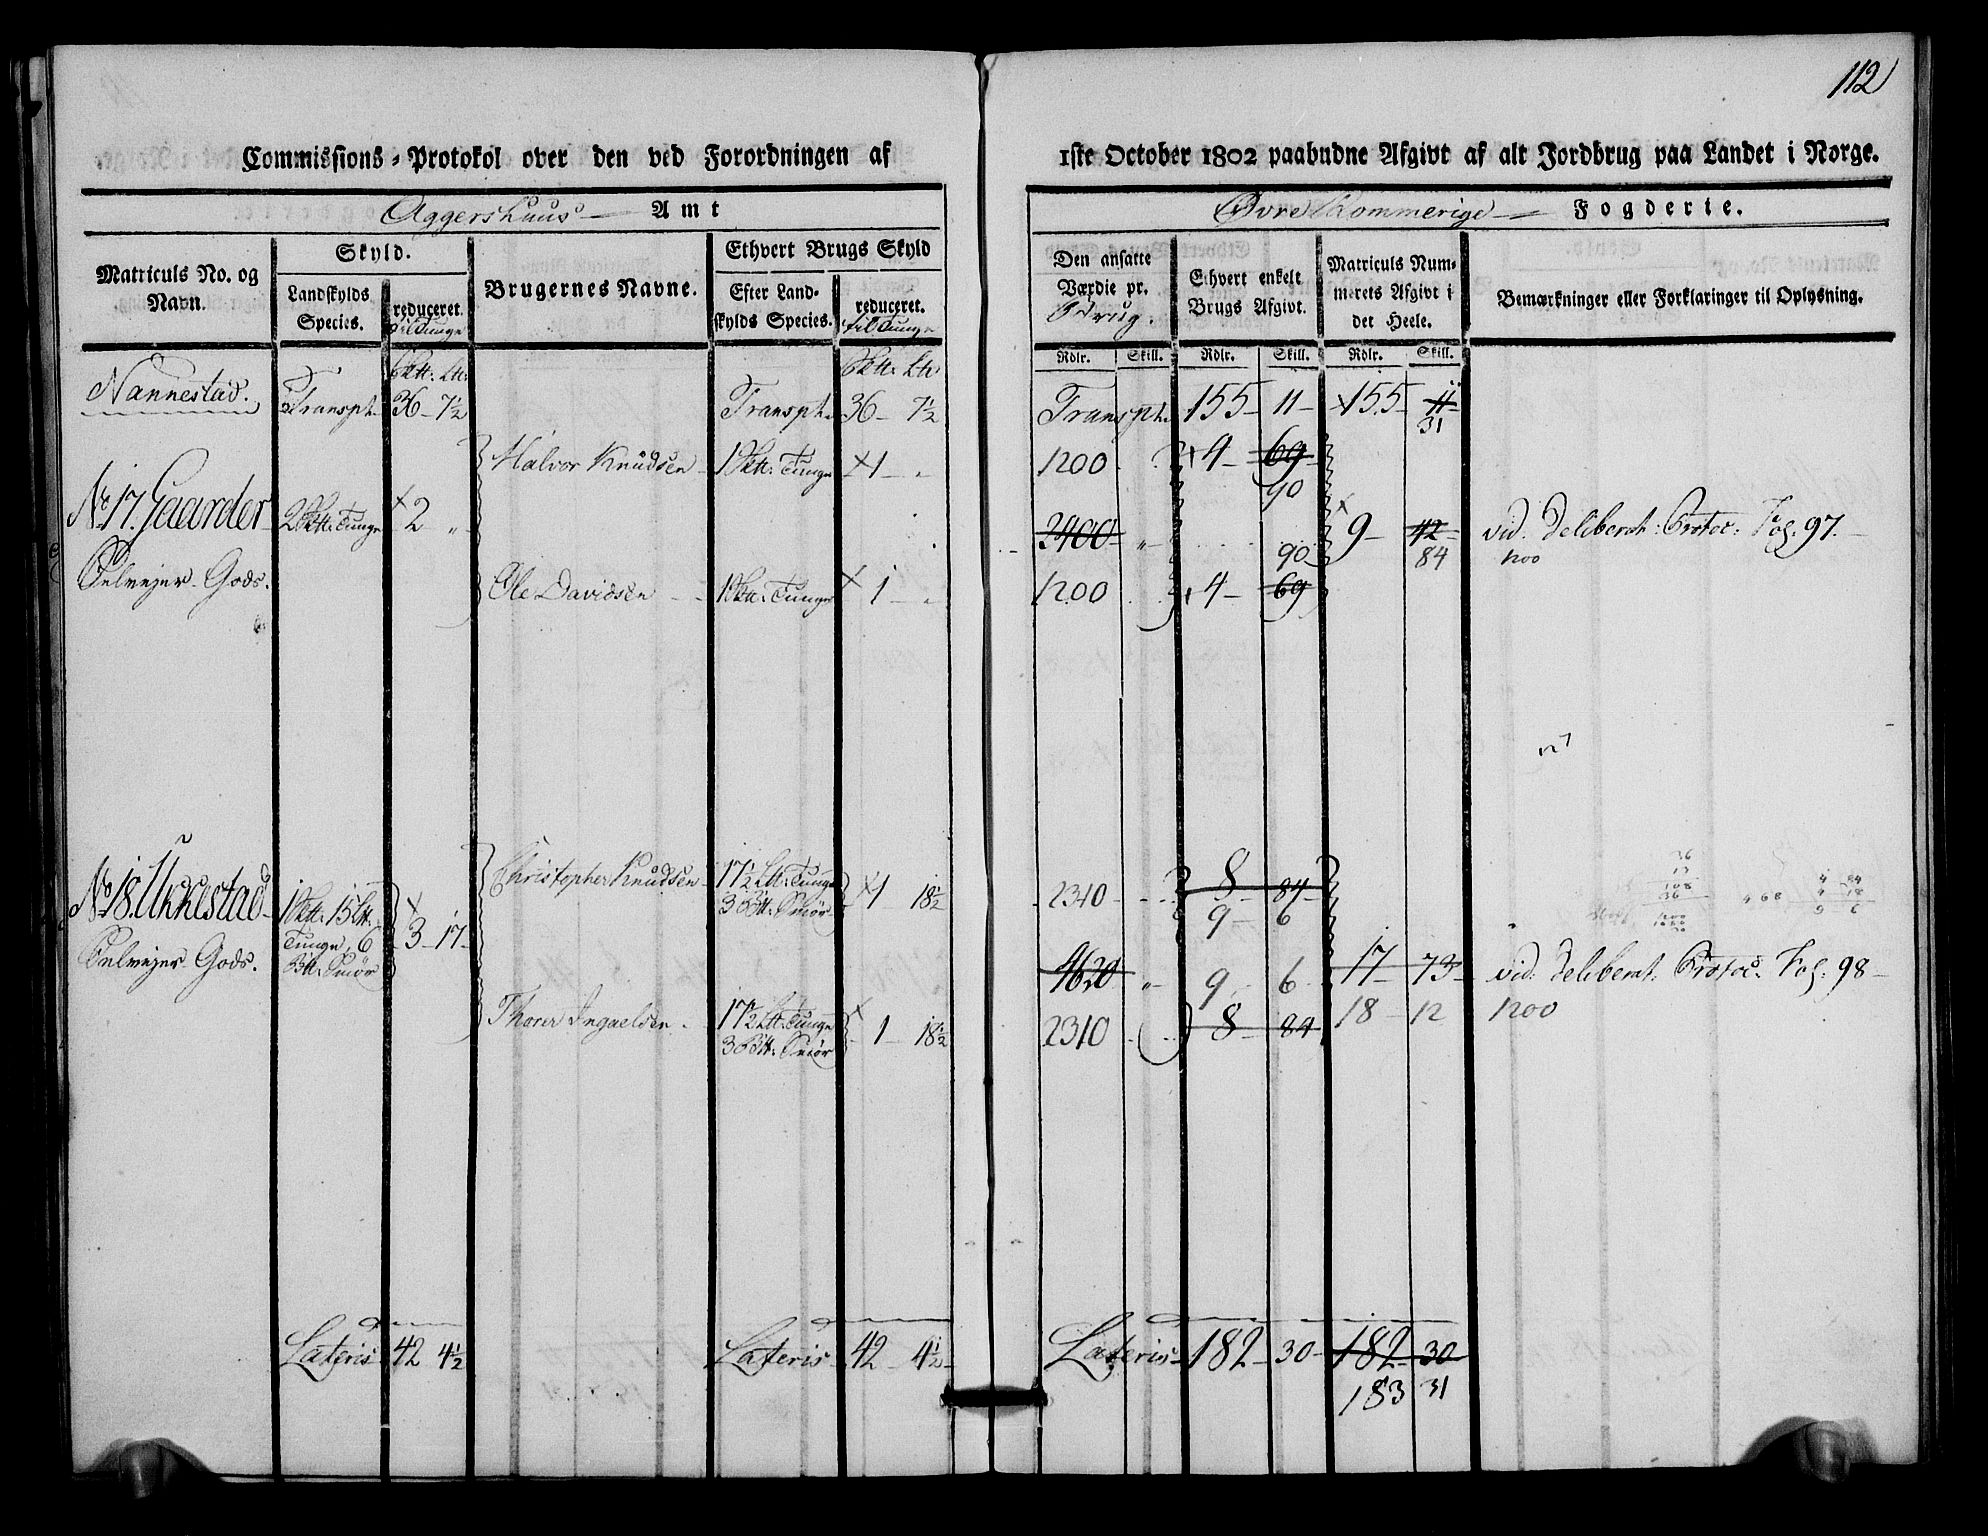 112
Commissions-Protokol over den ved Forordningen af 1ste October 1802 paabudne Afgivt af alt Jordbrug paa Landet i Norge.
Aggershuus Amt
Øvre Rommerige Fogderie.
Matriculs No. og Navn.
Skyld.
Landskylds Species.
reduceret.
til Tunge
Brugernes Navne.
Ethvert Brugs Skyld
Efter Landskylds Species.
reduceret.
til Tunge
Den ansatte Værdie pr.
Ethvert enkelt Brugs Afgivt.
Matriculs Nummerets Afgivt i det Heele.
Bemærkninger eller Forklaringer til Oplysning.
Rdlr. Skill. Rdlr. Skill. Rdlr. Skill.
Nannestad. Transpt. 36 - 7½ Transpt. 36 - 7½ Transpt. 155 - 11 - 155 - 11
31
Halvor Knudsen 1 Skt: Tunge 1 - 1200 4 - 69
90
No 17. Gaarder 2 Skt: Tunge 2 2400 9 - 42 vid. Deliberat: Protoc. Fol. 97.
90 84 1200
Selvejer Gods.
Ole Davidsen 1 Skt: Tunge 1 - 1200 4 - 69
Christopher Knudsen 17½ Lt: Tunge 3 Bt: Smør 1 18½ 2310 8 - 84
9 - 6
No 18. Ukkestad 1 Skt: 15 Lt: Tunge, 6 Bt: Smør 3 - 17 -
Selvejer Gods.
4620 9 6 17 - 73 vid. Deliberat. Protoc. Fol: 98
18 - 12 1200
Thorer Ingaelsen 17½ Lt: Tunge 3 Bt: Smør 1 18½ 2310 8 - 84
Lateris 42 4½ Lateris 42 4½ Lateris 182 - 30 - 182 - 30
183 31